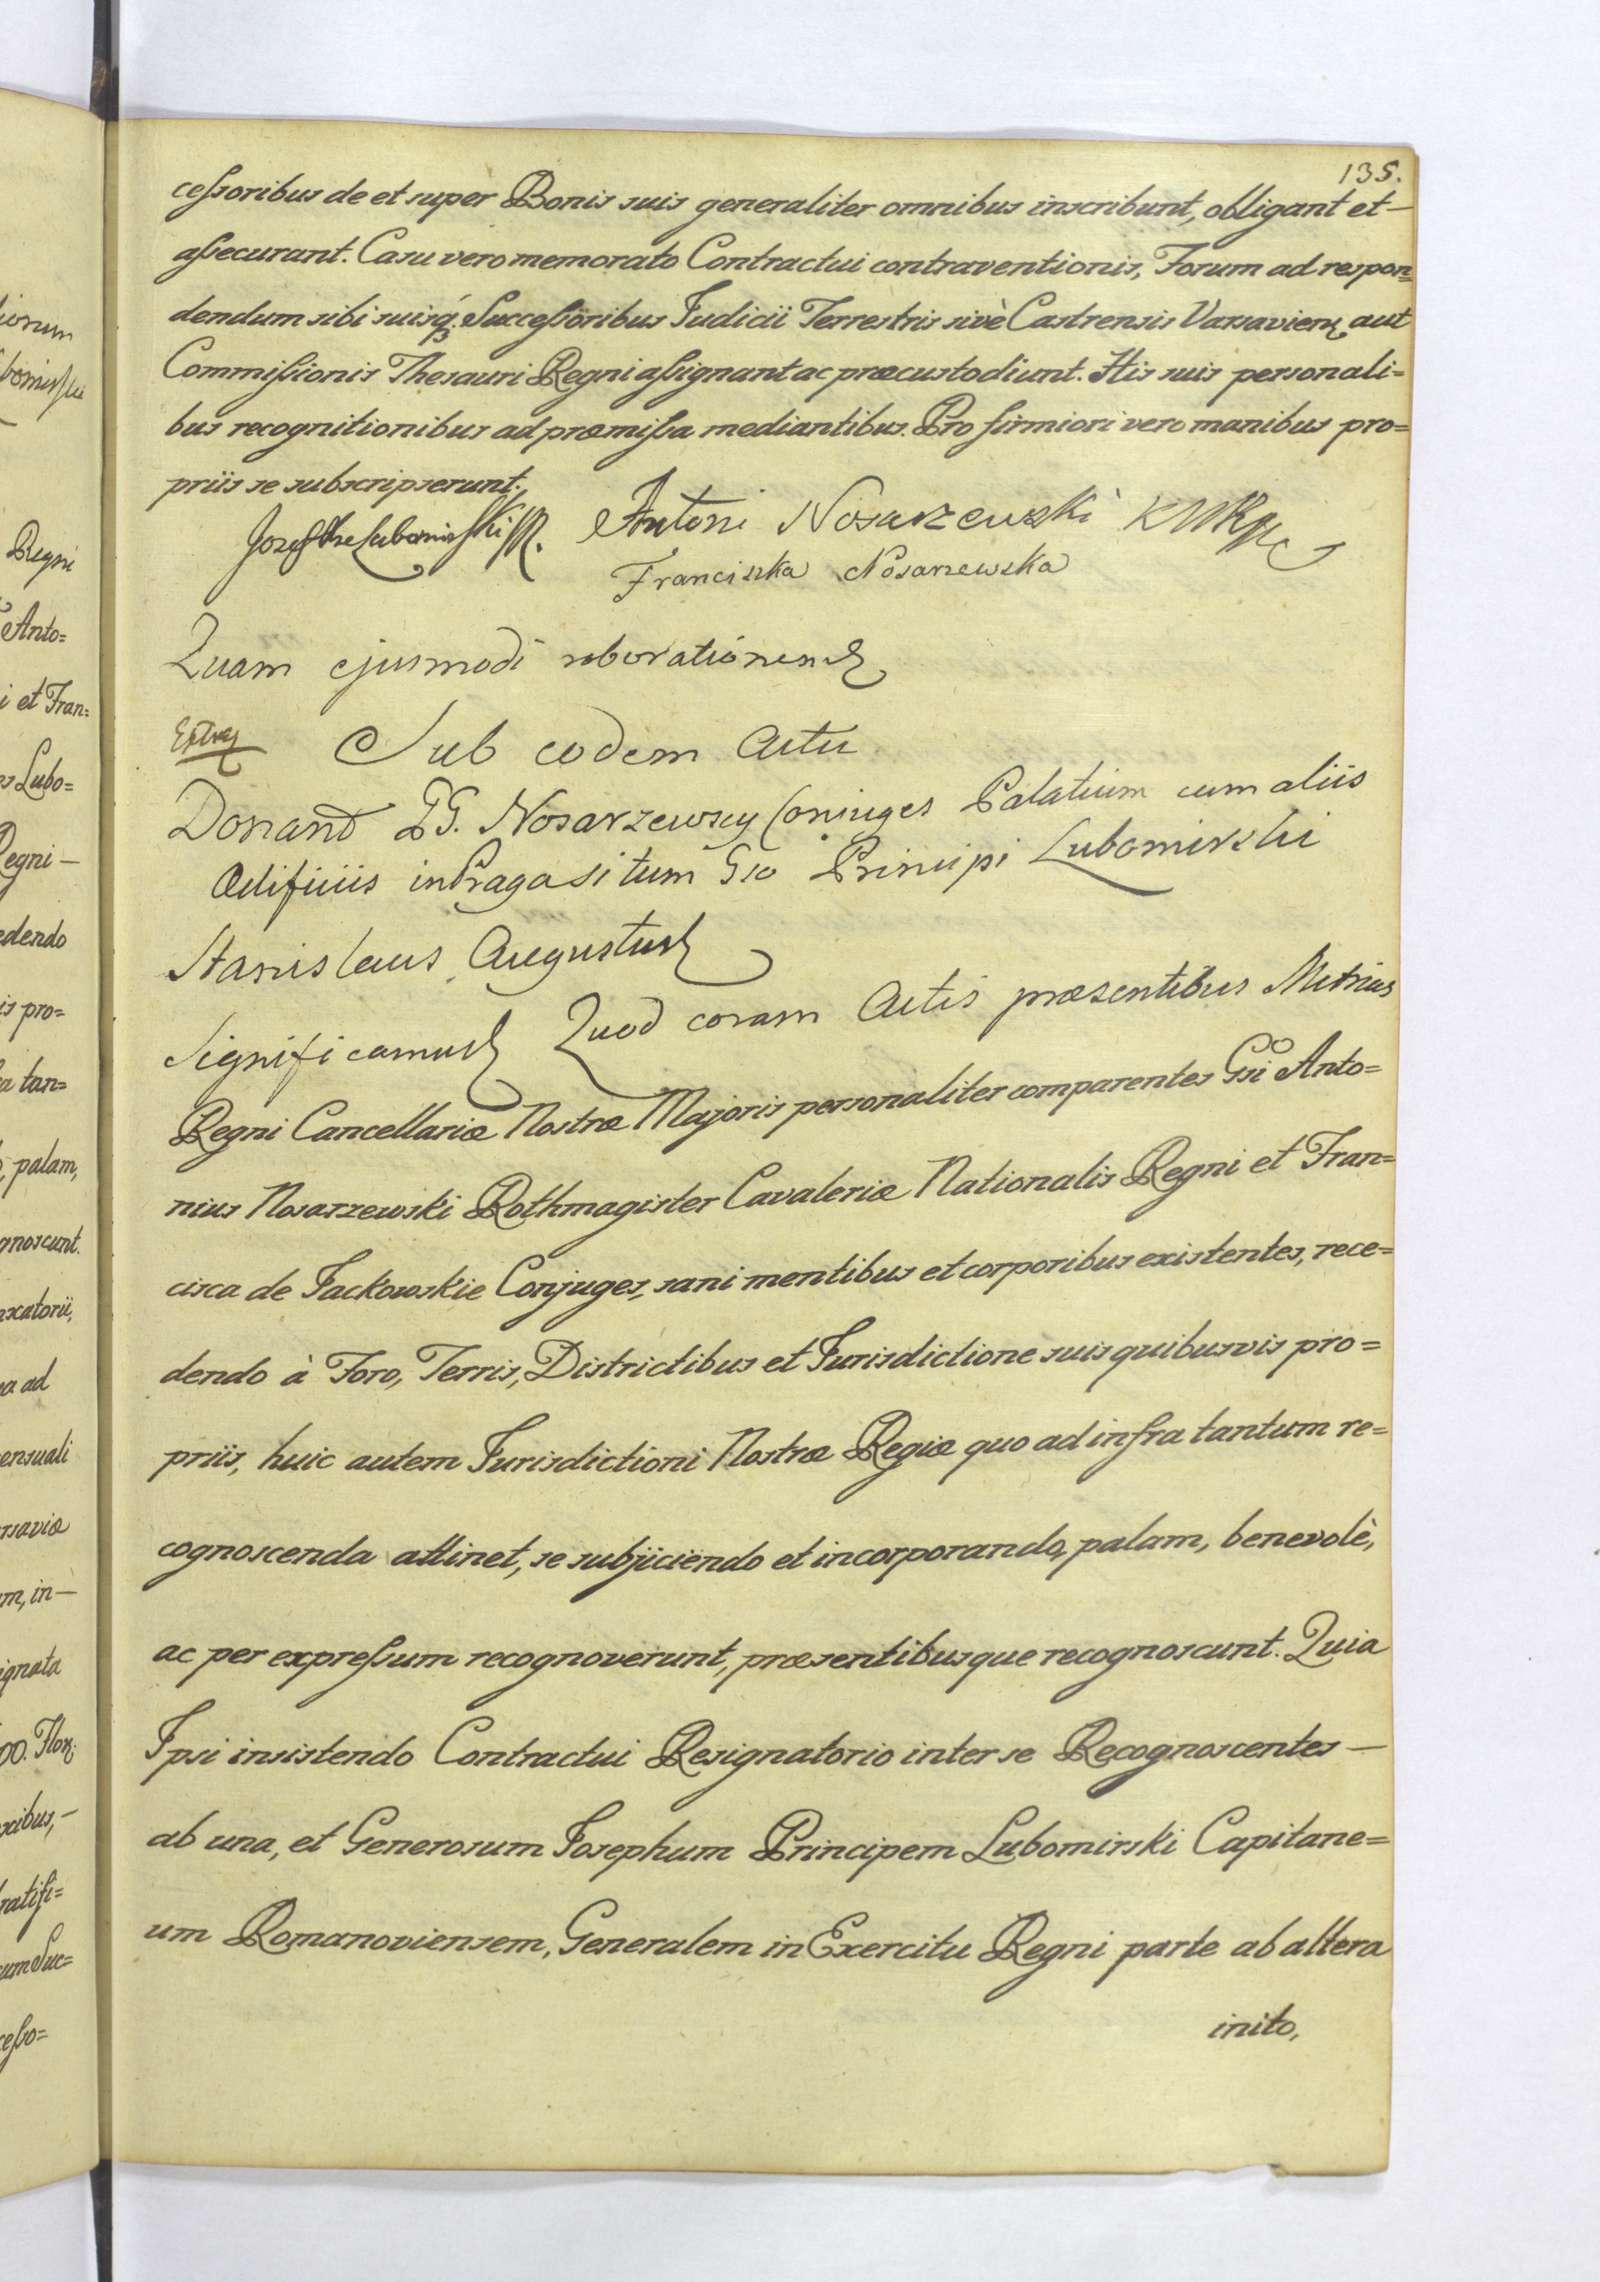 135.
ceſsoribus de et super Bonis suis generaliter omnibus inscribunt, obligant et —
aſsecurant. Casu vero memorato Contractui contraventionis, Forum ad respon=
dendum sibi suisq; Succeſsoribus Judicii Terrestris sivè Castrensis Varsavien: aut
Commiſsionis Thesauri Regni aſsignant ac præcustodiunt. His suis personali=
bus recognitionibus ad præmiſsa mediantibus. Pro firmiori vero manibus pro=
priis se subscripserunt.
Jozef Lubomirski Antoni Nosarzewski
Franciszka Nosarzewska
Quam ejusmodi roborationem
Sub eodem Actu
Donant GG. Nosarzewscy Coniuges Palatium cum aliis
Ædificiis in Praga situm Gso Principi Lubomirski
Stanislaus Augustus
Significamus Quod coram Actis præsentibus Metrices
Regni Cancellariæ Nostræ Majoris personaliter comparentes Gsi Anto=
nius Nosarzewski Rothmagister Cavaleriæ Nationalis Regni et Fran=
cisca de Jackowskie Conjuges, sani mentibus et corporibus existentes, rece=
dendo à Foro, Terris, Districtibus et Jurisdictione suis quibusvis pro=
priis, huic autem Jurisdictioni Nostræ Regiæ quo ad infra tantum re=
cognoscenda attinet, se subjiciendo et incorporando, palam, benevolè,
ac per expreſsum recognoverunt, præsentibusque recognoscunt. Quia
Ipsi insistendo Contractui Resignatorio inter se Recognoscentes —
ab una, et Generosum Josephum Principem Lubomirski Capitane=
um Romanoviensem, Generalem in Exercitu Regni parte ab altera
inito,